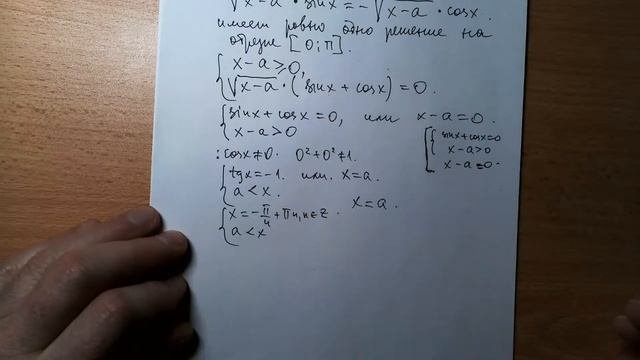 √x-a · sinx = -√x-a · cosx.
имеет ровно одно решение на
отрезке [0; π].
{ x-a ≥ 0,
√x-a · (sinx + cosx) = 0.
{ sinx + cosx = 0, или x-a = 0.
x-a > 0
{ sinx + cosx = 0
x-a > 0
x-a = 0.
: cosx ≠ 0. 0² + 0² ≠ 1.
{ tgx = -1. или x = a.
a < x.
{ x = -π/4 + πn, n ∈ Z. x = a.
a < x